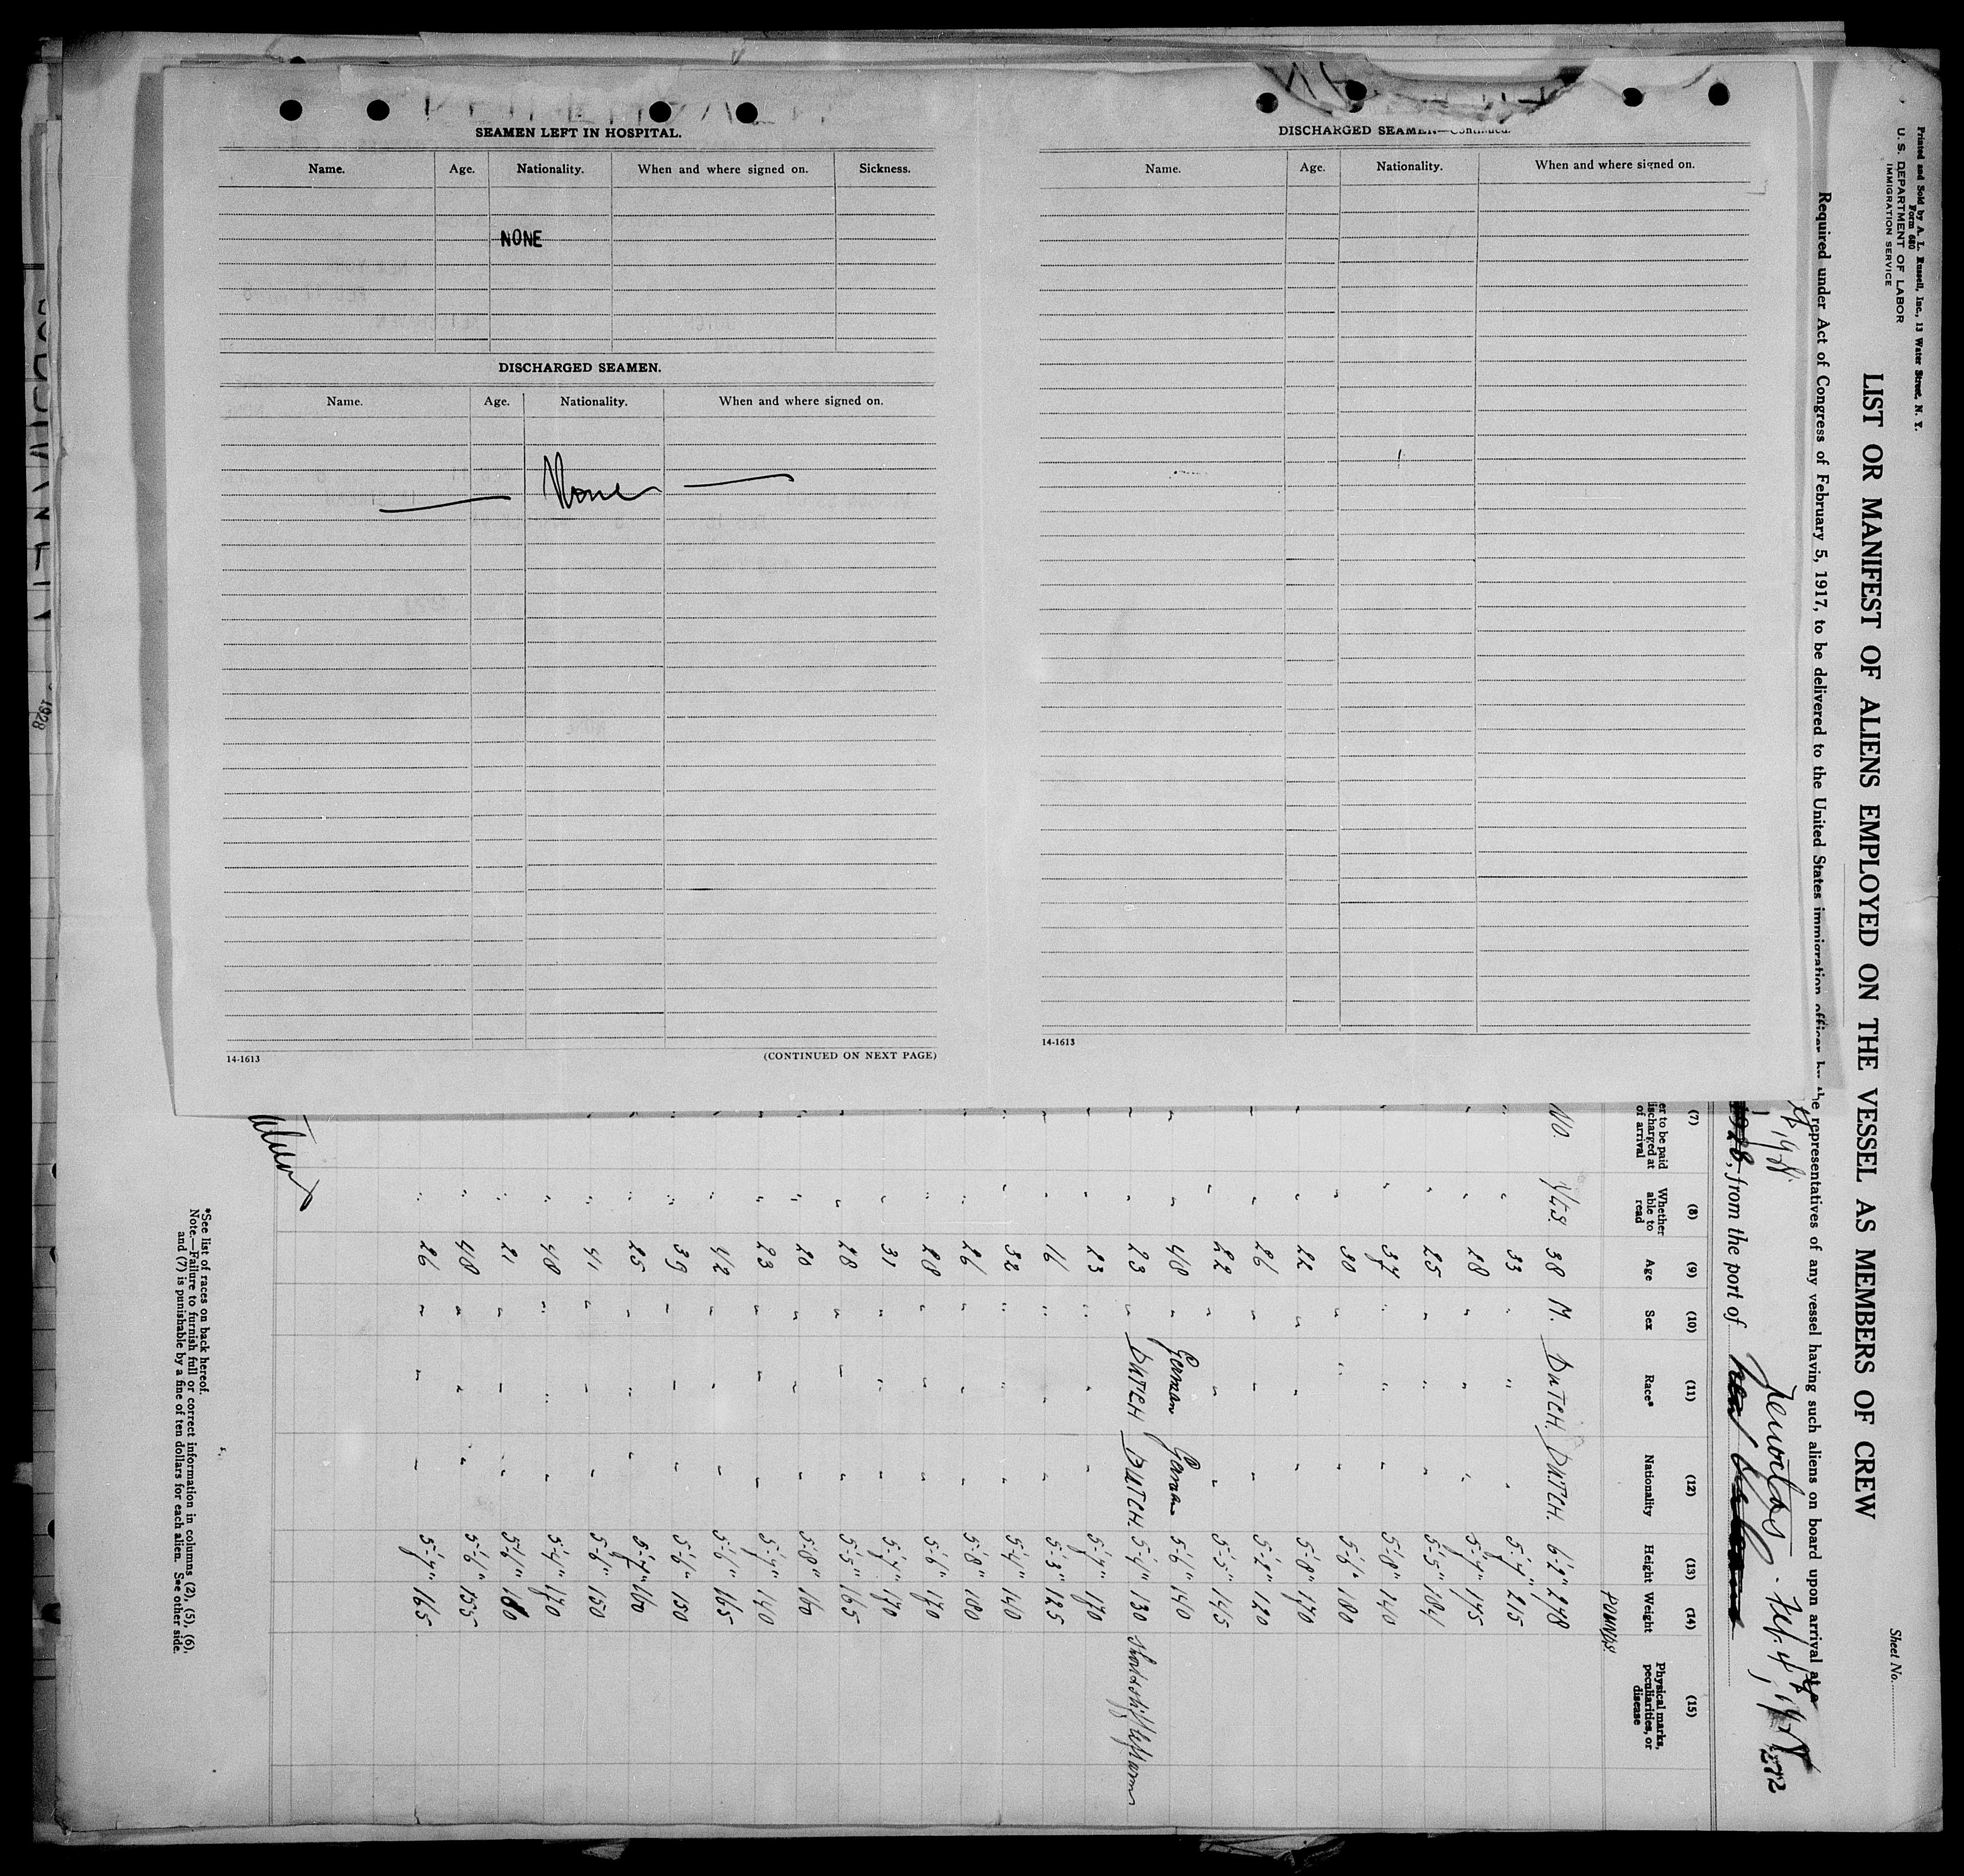 SEAMEN LEFT IN HOSPITAL.
Name. Age. Nationality. When and where signed on. Sickness.
NONE
DISCHARGED SEAMEN.
Name. Age. Nationality. When and where signed on.
None
14-1613 (CONTINUED ON NEXT PAGE)
DISCHARGED SEAMEN—Continued.
Name. Age. Nationality. When and where signed on.
14-1613
Printed and Sold by A. L. Russell, Inc., 13 Water Street, N. Y.
Form 680
U. S. DEPARTMENT OF LABOR
IMMIGRATION SERVICE
Sheet No.
LIST OR MANIFEST OF ALIENS EMPLOYED ON THE VESSEL AS MEMBERS OF CREW
Required under Act of Congress of February 5, 1917, to be delivered to the United States immigration officer by the representatives of any vessel having such aliens on board upon arrival
272
1928, from the port of
(7) (8) (9) (10) (11) (12) (13) (14) (15)
er to be paid
discharged at
of arrival
Whether
able to
read
Age
Sex
Race*
Nationality
Height
Weight
Physical marks,
peculiarities, or
disease
POUNDS.
NO. YES. 38 M. DUTCH. DUTCH. 6'-2" 278
" 33 " " " 5'-7" 215
" 28 " " " 5'-7" 175
" 25 " " " 5'-5" 184
" 37 " " " 5'-8" 140
" 30 " " " 5'-6" 180
" 22 " " " 5'-8" 170
" 26 " " " 5'-2" 120
" 22 " " " 5'-5" 145
" 48 " German German 5'-6" 140
" 23 " DUTCH DUTCH. 5'-4" 130 left arm
" 23 " " " 5'-7" 170
" 16 " " " 5'-3" 125
" 32 " " " 5'-4" 140
" 26 " " " 5'-8" 180
" 28 " " " 5'-6" 170
" 31 " " " 5'-7" 170
" 28 " " " 5'-5" 165
" 20 " " " 5'-8" 160
" 23 " " " 5'-7" 140
" 42 " " " 5'-6" 165
" 39 " " " 5'-6" 150
" 25 " " " 5'-7" 160
" 41 " " " 5'-6" 150
" 48 " " " 5'-4" 170
" 21 " " " 5'-6" 180
" 48 " " " 5'-6" 155
" 26 " " " 5'-7" 165
*See list of races on back hereof.
Note.—Failure to furnish full or correct information in columns (2), (5), (6),
and (7) is punishable by a fine of ten dollars for each alien. See other side.
1928